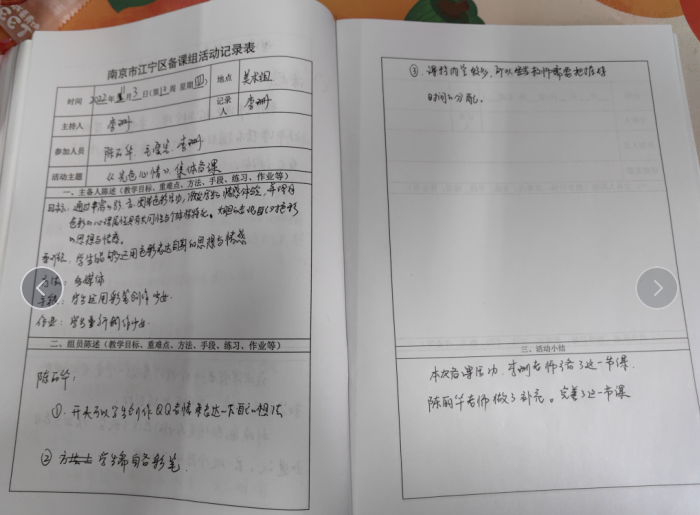 南京市江宁区备课组活动记录表
时间 2022年11月3日(第12周 星期四) 地点 美术组
主持人 李珊 记录人 李珊
参加人员 陈丽华 李珊
活动主题 《光色心情》集体备课
一、主备人陈述（教学目标、重难点、方法、手段、练习、作业等）
目标：通过丰富的影、音、图果色彩活动,
色彩的心理属性具有共同性与个体特殊化。大胆的去说自己对色彩
的思想与情感。
重难点：学生能够运用色彩表达自己的思想与情感
方法：多媒体
手段：学生运用彩笔创作
作业：学生重新创作
二、组员陈述（教学目标、重难点、方法、手段、练习、作业等）
陈丽华：
①. 开头可以学生创作QQ表情来表达一下自己的想法
② 学生需自备彩笔.
③ 课程内容较多,所以老师需要把握好
时间的分配。
三、活动小结
本次备课活动,李珊老师了这一节课.
陈丽华老师做了补充。完善了这一节课